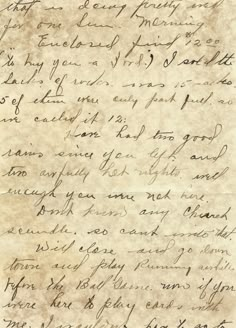 that is doing pretty well
for one Sun. Morning
Enclosed find 12.00
to buy you a food.) I sold the
sacks of rocks. was 15 sacks
5 of them were only part full so
we called it 12.
Have had two good
rains since you left and
two awfully hot nights, well
enough you were not here.
Dont know any Church
scandle. so cant write that
Will close and go down
town and play Running
before the Ball Game. now if you
were here to play cards with
me I